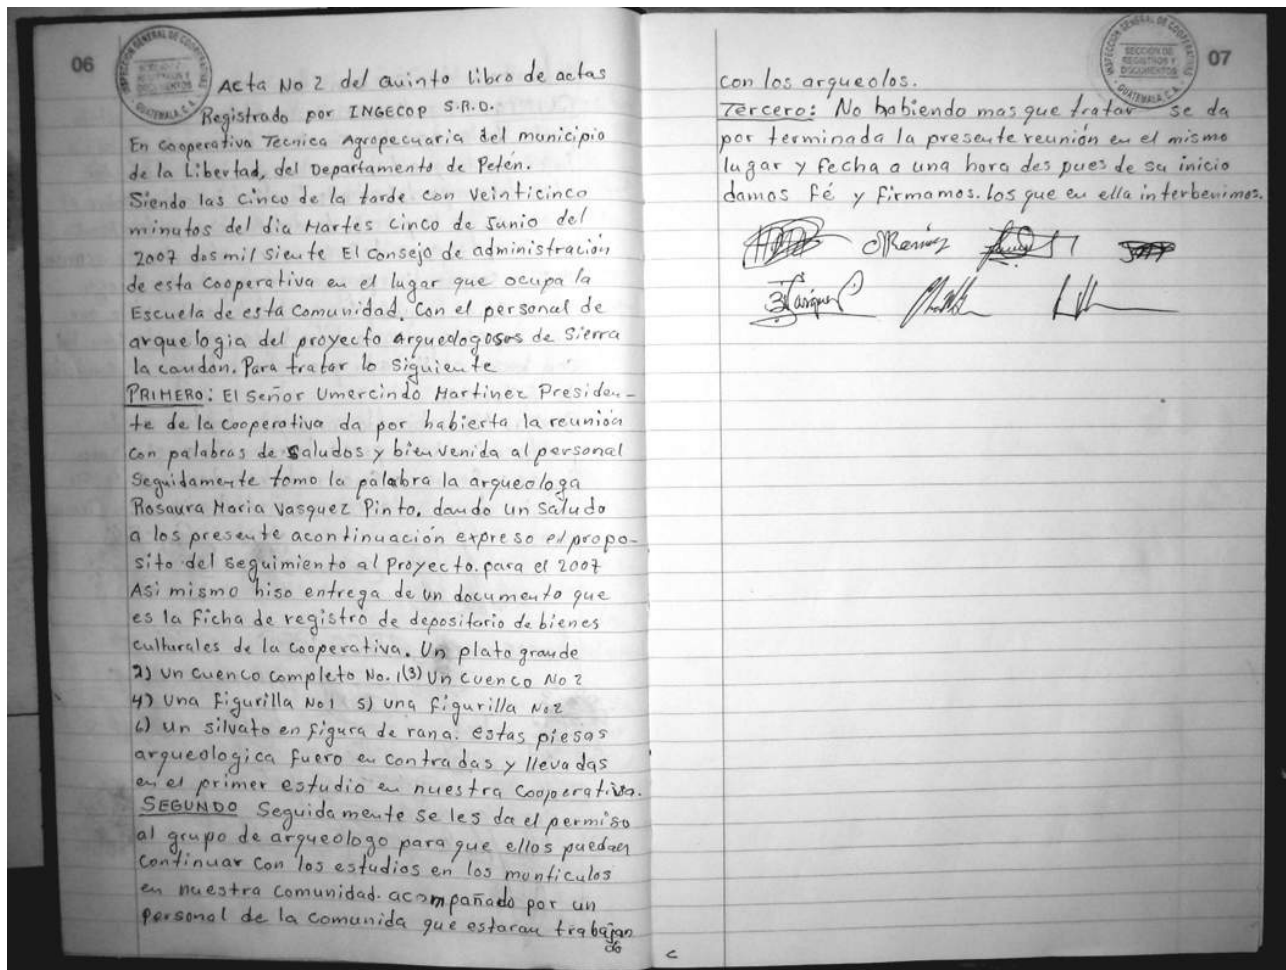 06
INSPECCION GENERAL DE COOPERATIVAS
GUATEMALA, C.A.
Acta No 2 del quinto libro de actas
Registrado por INGECOP S.R.D.
En cooperativa Tecnica Agropecuaria del municipio
de la Libertad, del Departamento de Petén.
Siendo las cinco de la tarde con veinticinco
minutos del dia Martes cinco de Junio del
2007 dos mil siente El consejo de administración
de esta cooperativa en el lugar que ocupa la
Escuela de esta Comunidad. Con el personal de
arquelogia del proyecto arqueologosos de Sierra
la candon. Para tratar lo siguiente
PRIMERO: El Señor Umercindo Martinez Presiden-
te de la cooperativa da por habierta la reunión
con palabras de saludos y bienvenida al personal
Seguidamente tomo la palabra la arqueologa
Rosaura Maria Vasquez Pinto, dando un saludo
a los presente acontinuación expreso el propo-
sito del seguimiento al Proyecto. para el 2007
Asi mismo hiso entrega de un documento que
es la ficha de registro de depositario de bienes
culturales de la cooperativa. Un plato grande
2) un cuenco completo No. 1 (3) Un cuenco No 2
4) Una figurilla No1 5) una figurilla No2
6) un silvato en figura de rana. estas piesas
arqueologica fuero en contradas y llevadas
en el primer estudio en nuestra Cooperativa.
SEGUNDO Seguidamente se les da el permiso
al grupo de arqueologo para que ellos puedan
continuar con los estudios en los monticulos
en nuestra comunidad. acompañado por un
personal de la comunida que estaran trabajan
do
INSPECCION GENERAL DE COOPERATIVAS
SECCION DE
REGISTROS Y
DOCUMENTOS
GUATEMALA, C.A.
07
con los arqueolos.
Tercero: No habiendo mas que tratar se da
por terminada la presente reunión en el mismo
lugar y fecha a una hora des pues de su inicio
damos Fé y firmamos. los que en ella interbenimos.
Ramirez
Vasquez